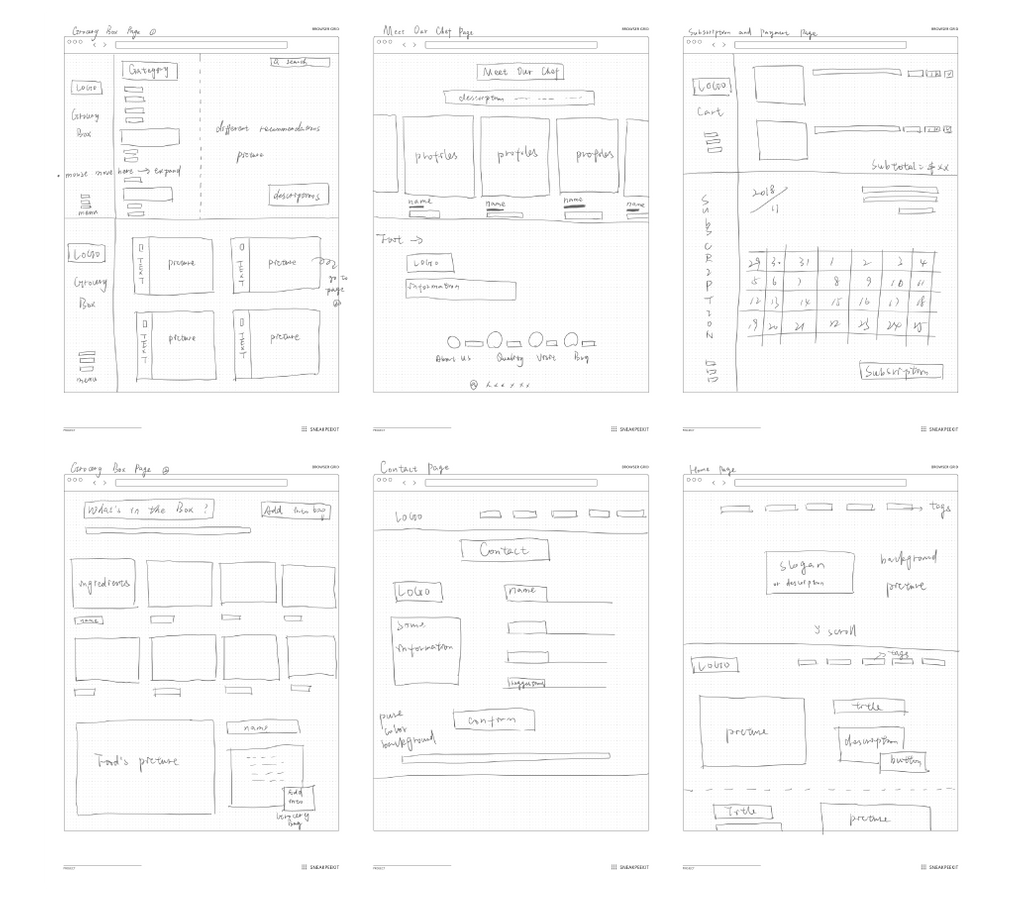 Grocery Box Page ①
BROWSER GRID
Category
search
LOGO
Grocery
Box
different recommendations
picture
• mouse move here → expand
menu
descriptions
LOGO
Grocery
Box
TEXT
picture
TEXT
picture
go to
page
②
TEXT
picture
TEXT
picture
menu
PROJECT
SNEAKPEEKIT
Meet Our Chef Page
BROWSER GRID
Meet Our Chef
description
profiles
profiles
profiles
name
name
name
name
Foot →
LOGO
information
About Us
Quality
Bag
PROJECT
SNEAKPEEKIT
Subscription and Payment Page
BROWSER GRID
LOGO
Cart
Subtotal = $ xx
SUBSCRIPTION
2018
11
29 30 31 1 2 3 4
5 6 7 8 9 10 11
12 13 14 15 16 17 18
19 20 21 22 23 24 25
Subscription
PROJECT
SNEAKPEEKIT
Grocery Box Page ②
BROWSER GRID
What's in the Box ?
Add into bag
ingredients
name
Food's picture
name
Add
into
Grocery
Bag
PROJECT
SNEAKPEEKIT
Contact Page
BROWSER GRID
LOGO
Contact
LOGO
name
Some
information
pure
color
background
confirm
PROJECT
SNEAKPEEKIT
Home Page
BROWSER GRID
tags
slogan
or description
background
picture
scroll
LOGO
tags
picture
title
description
button
Title
picture
PROJECT
SNEAKPEEKIT